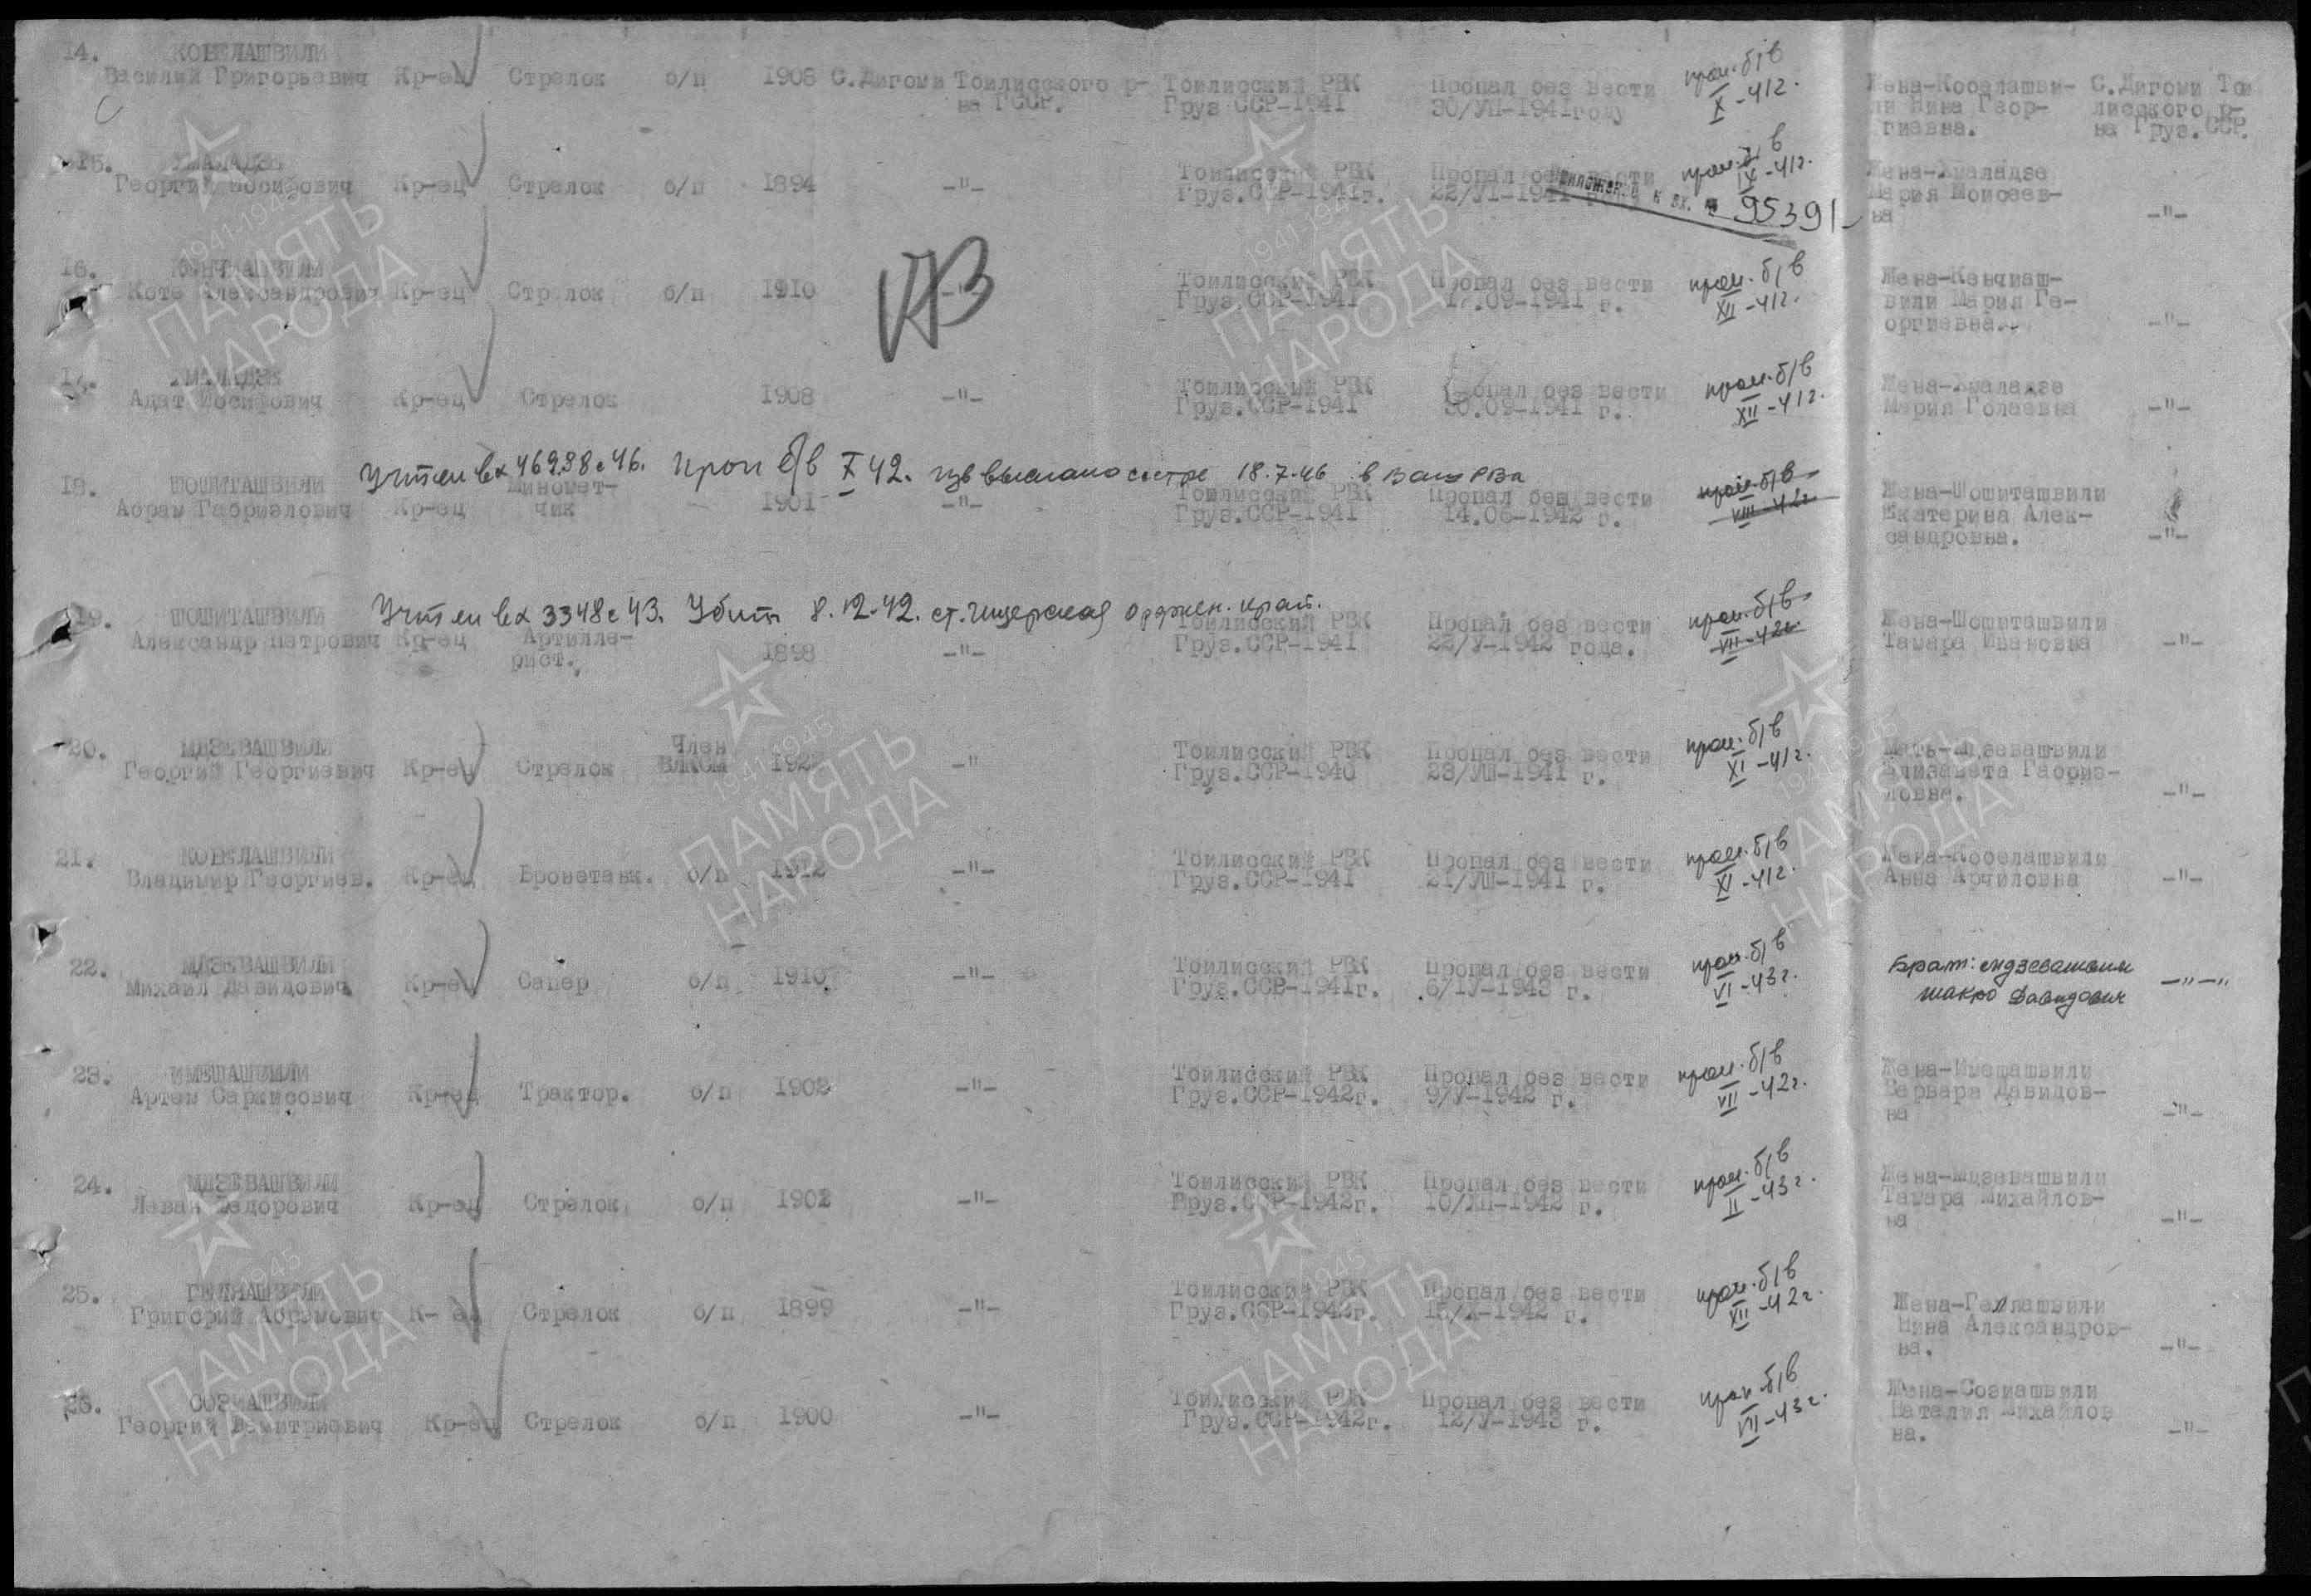 14. КОБЕЛАШВИЛИ
Василий Григорьевич Кр-ец Стрелок б/п 1908 С.Дигоми Тбилисского р-на ГССР. Тбилисский РВК Груз ССР-1941 Пропал без вести 30/УП-1941году проп. б/в X-41г. Жена-Кобелашвили Нина Георгиевна. С.Дигоми Тбилисского р-на Груз.ССР.
15. ХМАЛАДЗЕ
Георгий Иосифович Кр-ец Стрелок б/п 1894 -"- Тбилисский РВК Груз.ССР-1941г. Пропал без вести 22/УІ-1941 проп. б/в IX-41г. Жена-Хмаладзе Мария Моисеевна -"-
к вх. № 95391
16.
Коте Александрович Кр-ец Стрелок б/п 1910 -"- Тбилисский РВК Груз.ССР-1941 Пропал без вести 17.09-1941 г. проп. б/в XII-41г. Жена-Кенчиашвили Мария Георгиевна. -"-
17. ХМАЛАДЗЕ
Адат Иосифович Кр-ец Стрелок 1908 -"- Тбилисский РВК Груз.ССР-1941 Пропал без вести 30.09-1941 г. проп. б/в XII-41г. Жена-Хмаладзе Мария -"-
Учтен вх 46998с46. Проп б/в X 42. изв выслано сестре 18.7.46 в
18. ШОШИТАШВИЛИ
Абрам Габриелович Кр-ец Минометчик 1901 -"- Тбилисский РВК Груз.ССР-1941 Пропал без вести 14.06-1942 г. проп. б/в VIII-42г Жена-Шошиташвили Екатерина Александровна. -"-
Учтен вх 3348с43. Убит 8.12.42. ст. Ищерская Орджен. край.
19. ШОШИТАШВИЛИ
Александр Петрович Кр-ец Артиллерист. 1898 -"- Тбилисский РВК Груз.ССР-1941 Пропал без вести 22/У-1942 года. проп. б/в VII-42г. Жена-Шошиташвили Тамара Ивановна -"-
20. МДЗЕВАШВИЛИ
Георгий Георгиевич Кр-ец Стрелок Член ВЛКСМ 1922 -" Тбилисский РВК Груз.ССР-1940 Пропал без вести 28/УШ-1941 г. проп. б/в XI-41г. Мать-Мдзевашвили Елизавета Габриеловна. -"-
21. КОБЕЛАШВИЛИ
Владимир Георгиев. Кр-ец Бронетанк. б/п 1912 -"- Тбилисский РВК Груз.ССР-1941 Пропал без вести 21/УШ-1941 г. проп. б/в XI-41г. Жена-Кобелашвили Анна Арчиловна -"-
22. МДЗЕВАШВИЛИ
Михаил Давидович Кр-ец Сапер б/п 1910 -"- Тбилисский РВК Груз.ССР-1941г. Пропал без вести 6/ІУ-1943 г. проп. б/в VI-43г. Брат: Мдзевашвили Шакро Давидович -"-"
23. ИМЕШАШВИЛИ
Артем Саркисович Кр-ец Трактор. б/п 1902 -"- Тбилисский РВК Груз.ССР-1942г. Пропал без вести 9/У-1942 г. проп. б/в VII-42г. Жена-Имешашвили Варвара Давидовна -"-
24. МДЗЕВАШВИЛИ
Леван Федорович Кр-ец Стрелок б/п 1902 -"- Тбилисский РВК Груз.ССР-1942г. Пропал без вести 10/ХП-1942 г. проп. б/в II-43г. Жена-Мдзевашвили Тамара Михайловна -"-
25. ГЕЛЛАШВИЛИ
Григорий Абрамович К- ец Стрелок б/п 1899 -"- Тбилисский РВК Груз.ССР-1942г. Пропал без вести 15/Х-1942 г. проп. б/в XII-42г. Жена-Геллашвили Нина Александровна. -"-
26. СОЗИАШВИЛИ
Георгий Демитриевич Кр-ец Стрелок б/п 1900 -"- Тбилисский РВК Груз.ССР-1942г. Пропал без вести 12/У-1943 г. проп. б/в VII-43г. Жена-Созиашвили Наталия Михайловна. -"-
1941-1945
ПАМЯТЬ
НАРОДА